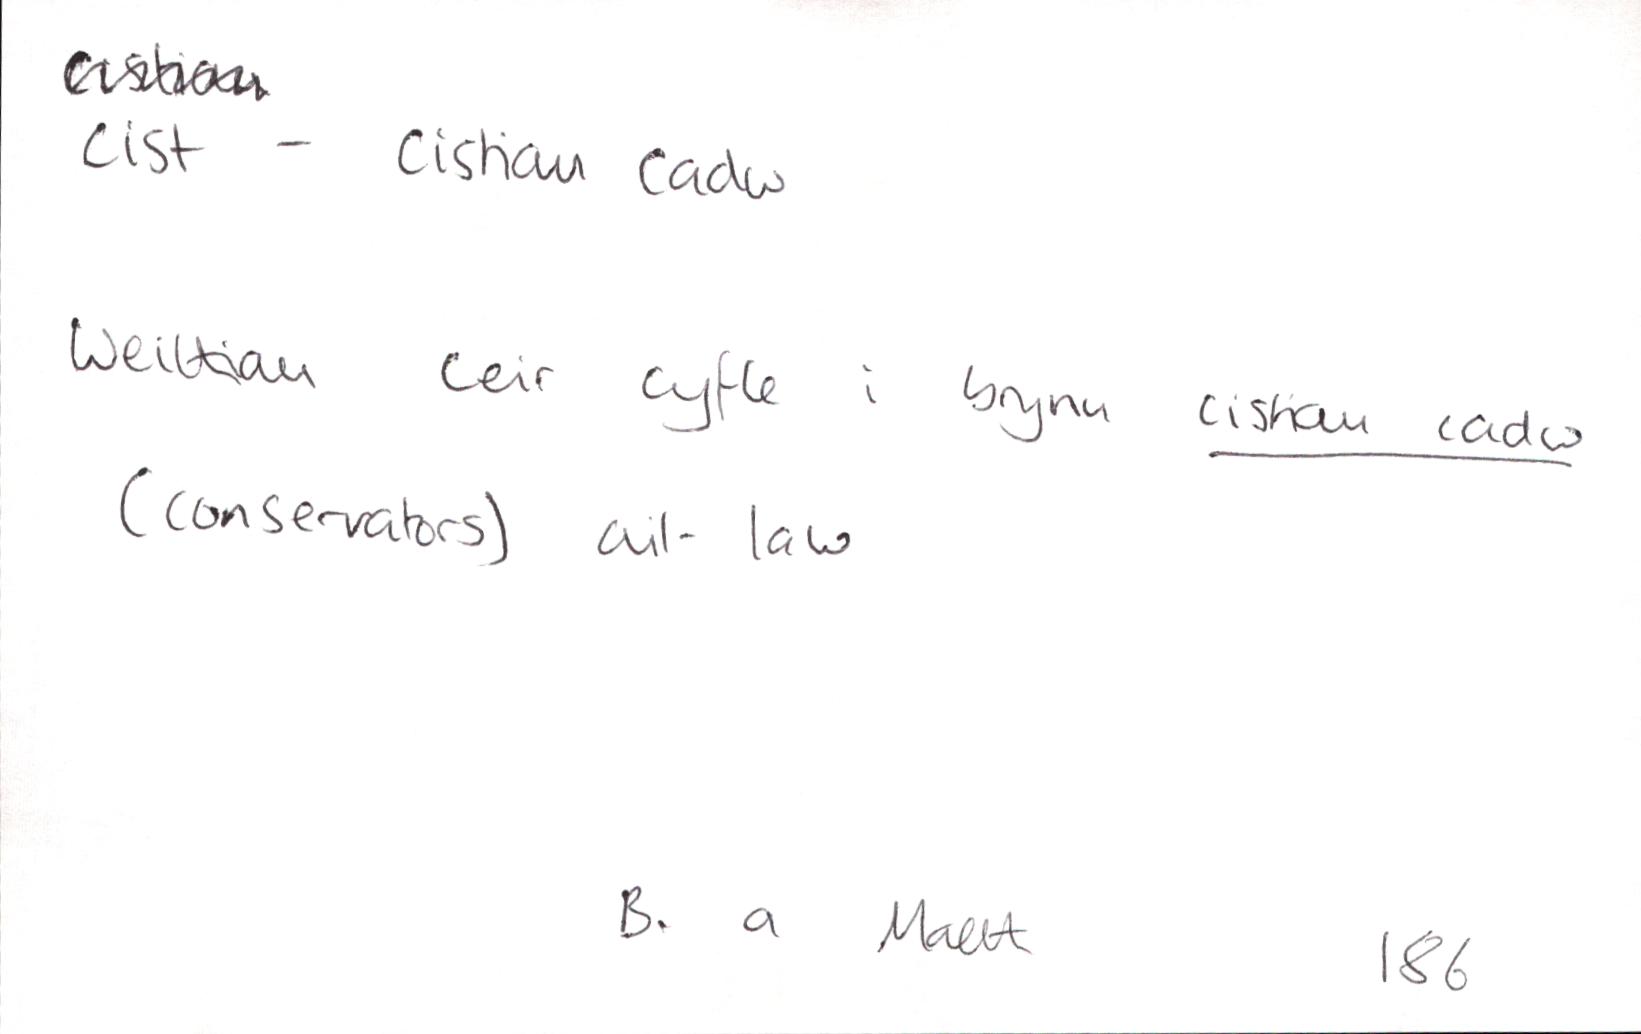 cistiau
cist - cistiau cadw
Weithiau ceir cyfle i brynu cistiau cadw
(conservators) ail-law
B. a Maeth 186